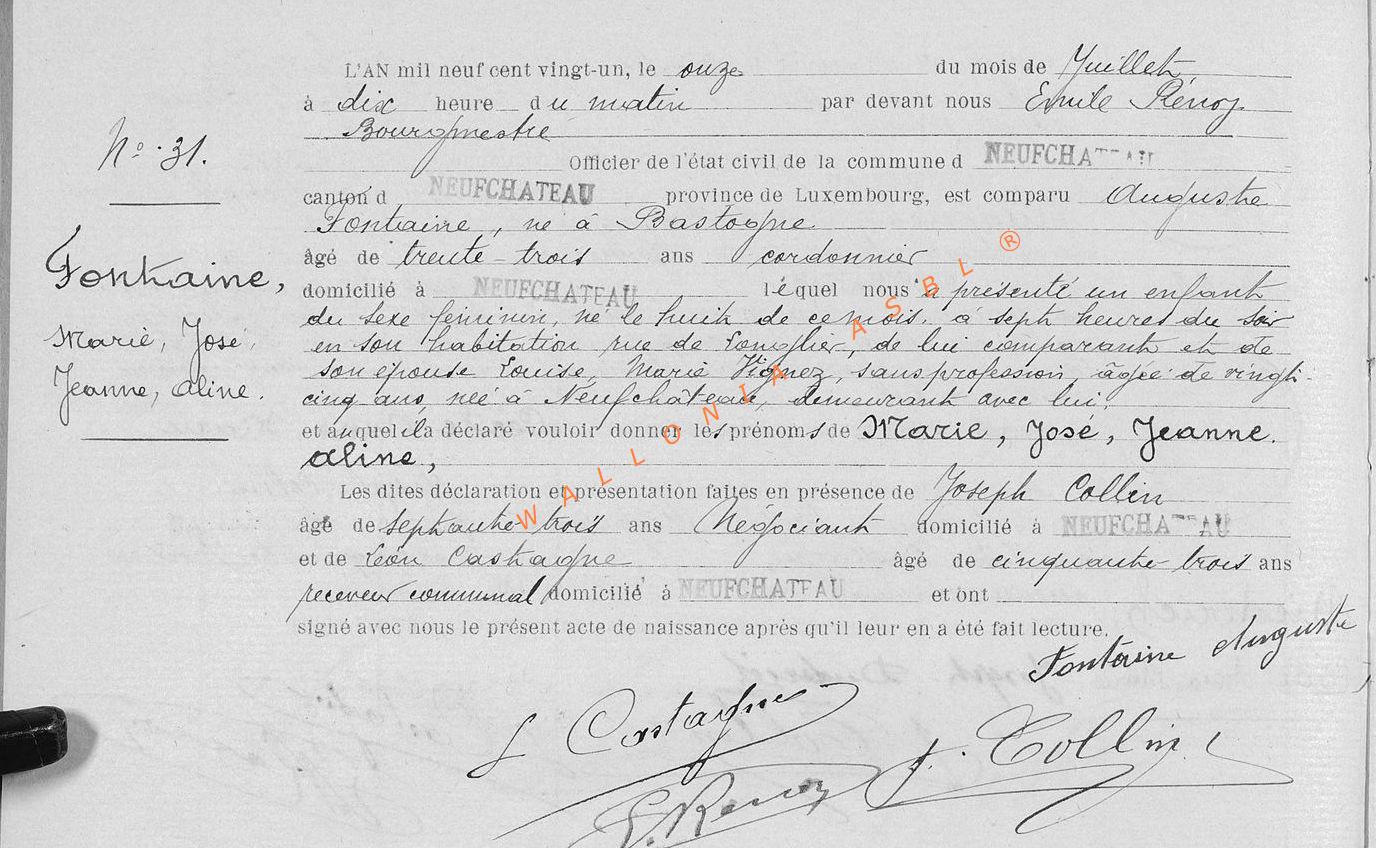 L'AN mil neuf cent vingt-un, le onze du mois de Juillet
à dix heure du matin par devant nous Emile Renoy
Bourgmestre
N° 31.
Officier de l'état civil de la commune d NEUFCHATEAU
canton d NEUFCHATEAU province de Luxembourg, est comparu Auguste
Fontaine, né à Bastogne
âgé de trente-trois ans cordonnier
Fontaine,
domicilié à NEUFCHATEAU lequel nous a présenté un enfant
du sexe féminin, né le huit de ce mois, à sept heures du soir
Marie, José,
en son habitation rue de Longlier, de lui comparant et de
son épouse Louise, Marie Vignez, sans profession, âgée de vingt-
Jeanne, Aline.
cinq ans, née à Neufchâteau, demeurant avec lui,
et auquel il a déclaré vouloir donner les prénoms de Marie, José, Jeanne.
Aline,
Les dites déclaration et présentation faites en présence de Joseph Collin
âgé de septante-trois ans Négociant domicilié à NEUFCHATEAU
et de Léon Castagne âgé de cinquante-trois ans
receveur communal domicilié à NEUFCHATEAU et ont
signé avec nous le présent acte de naissance après qu'il leur en a été fait lecture.
Fontaine Auguste
L Castagne
J. Collin
E. Renoy
WALLONIA ASBL ®